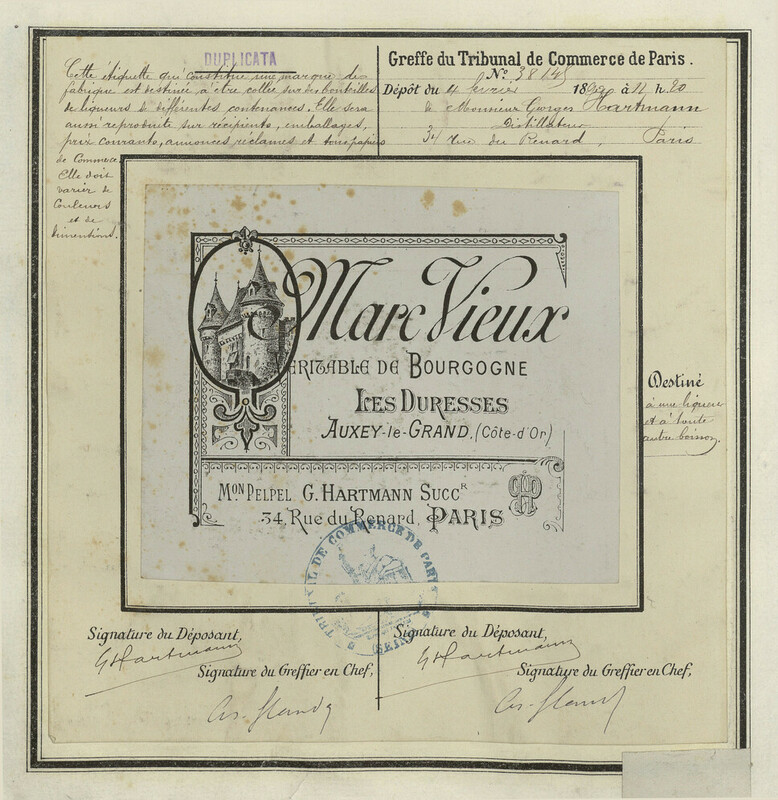 DUPLICATA
Cette étiquette qui constitue une marque de
fabrique est destinée à être collée sur des bouteilles
de liqueurs de différentes contenances. Elle sera
aussi reproduite sur récipients, emballages,
prix courants, annonces réclames et tous papiers
de Commerce
Elle doit
varier de
Couleurs
et de
dimentions.
Greffe du Tribunal de Commerce de Paris.
No
Dépôt du 4 fevrier 189 à 11 h. 20
de Monsieur Georges Hartmann
Distillateur
34 rue du Renard, Paris
Marc Vieux
VERITABLE DE BOURGOGNE
LES DURESSES
AUXEY-LE-GRAND. (CÔTE-D'OR)
MON PELPEL G. HARTMANN SUCCR
34, Rue du Renard, PARIS
Destiné
à une liqueur
et à toute
autre boisson.
TRIBUNAL DE COMMERCE DE PARIS
(SEINE)
Signature du Déposant,
GHartmann
Signature du Greffier en Chef,
Signature du Déposant,
GHartmann
Signature du Greffier en Chef,